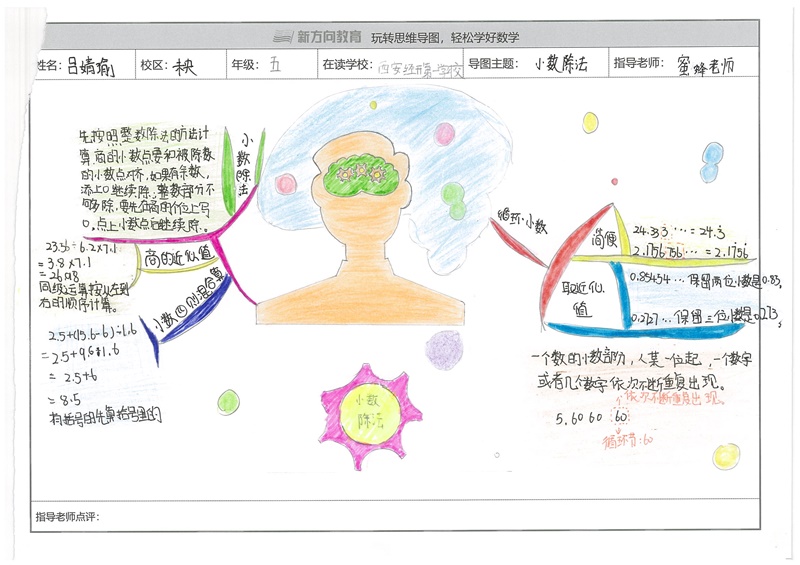 新方向教育 玩转思维导图，轻松学好数学
姓名：吕婧瑜 校区：秧 年级：五 在读学校：西安经开第一学校 导图主题：小数除法 指导老师：蜜蜂老师
先按照整数除法的方法计
算,商的小数点要和被除数
的小数点对齐,如果有余数,
添上0继续除,整数部分不
够除,要先在商的个位上写
0,点上小数点后继续除。
小数除法
23.56÷6.2×7.1
=3.8×7.1
=26.98
同级运算按从左到
右的顺序计算。
商的近似值
小数四则混合算
2.5+(15.6-6)÷1.6
=2.5+9.6÷1.6
=2.5+6
=8.5
有括号的先算括号里的
小数
除法
循环小数
简便
24.333…=24.3
2.1756756…=2.1756
取近似
值
0.85454…保留两位小数是0.85,
0.2727…保留三位小数是0.273,
一个数的小数部分,从某一位起,一个数字
或有几个数字依次不断重复出现。
依次不断重复出现.
5.6060 60
循环节:60
指导老师点评：